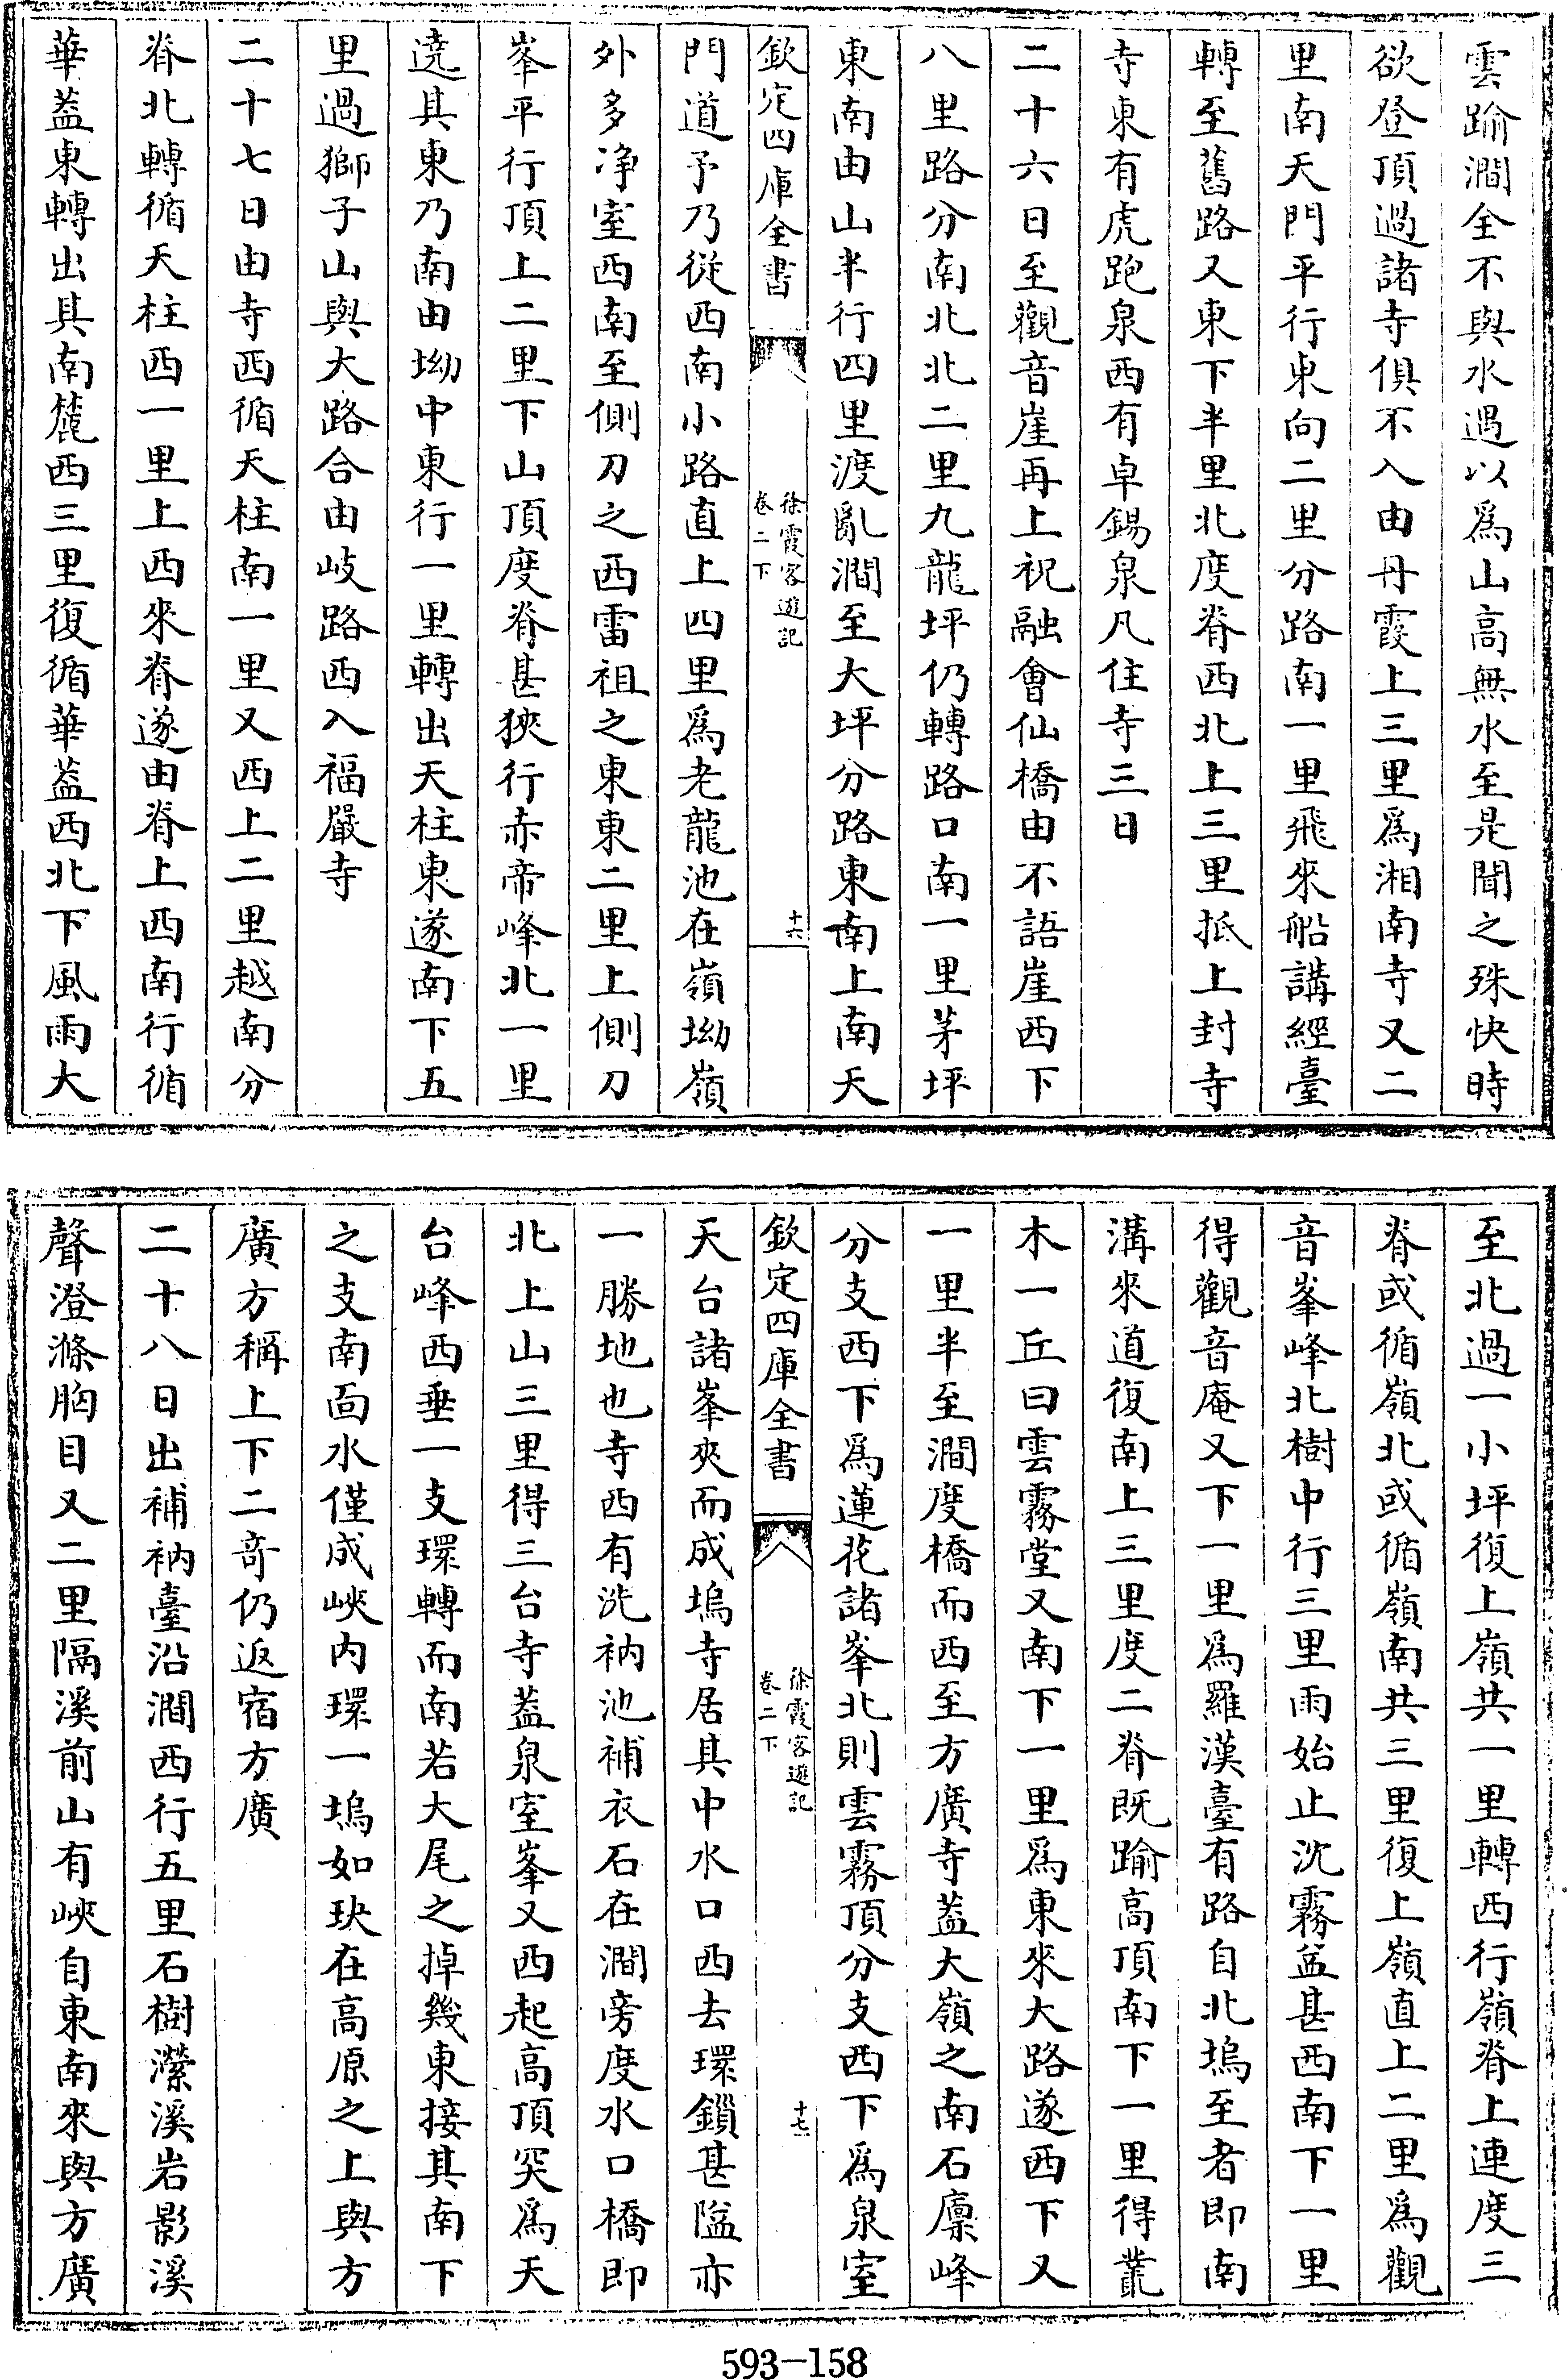 雲踰澗全不與水遇以爲山高無水至是聞之殊快時
欲登頂過諸寺俱不入由丹霞上三里爲湘南寺又二
里南天門平行東向二里分路南一里飛來船講經臺
轉至舊路又東下半里北度脊西北上三里抵上封寺
寺東有虎跑泉西有卓錫泉凡住寺三日
二十六日至觀音崖再上祝融會仙橋由不語崖西下
八里路分南北北二里九龍坪仍轉路口南一里茅坪
東南由山半行四里渡亂澗至大坪分路東南上南天
欽定四庫全書
徐霞客遊記
卷二下
十六
門道予乃從西南小路直上四里爲老龍池在嶺坳嶺
外多净室西南至側刀之西雷祖之東東二里上側刀
峯平行頂上二里下山頂度脊甚狹行赤帝峰北一里
遶其東乃南由坳中東行一里轉出天柱東遂南下五
里過獅子山與大路合由岐路西入福嚴寺
二十七日由寺西循天柱南一里又西上二里越南分
脊北轉循天柱西一里上西來脊遂由脊上西南行循
華葢東轉出其南麓西三里復循華葢西北下風雨大
至北過一小坪復上嶺共一里轉西行嶺脊上連度三
脊或循嶺北或循嶺南共三里復上嶺直上二里爲觀
音峯峰北樹中行三里雨始止沈霧盆甚西南下一里
得觀音庵又下一里爲羅漢臺有路自北塢至者即南
溝來道復南上三里度二脊既踰高頂南下一里得叢
木一丘曰雲霧堂又南下一里爲東來大路遂西下又
一里半至澗度橋而西至方廣寺葢大嶺之南石廪峰
分支西下爲蓮花諸峯北則雲霧頂分支西下爲泉室
欽定四庫全書
徐霞客遊記
卷二下
十七
天台諸峯夾而成塢寺居其中水口西去環鎖甚隘亦
一勝地也寺西有洗衲池補衣石在澗旁度水口橋即
北上山三里得三台寺葢泉室峯又西起高頂突爲天
台峰西垂一支環轉而南若大尾之掉幾東接其南下
之支南面水僅成峽内環一塢如玦在高原之上與方
廣方稱上下二竒仍返宿方廣
二十八日出補衲臺沿澗西行五里石樹瀠溪岩影溪
聲澄滌胸目又二里隔溪前山有峽自東南來與方廣
593-158